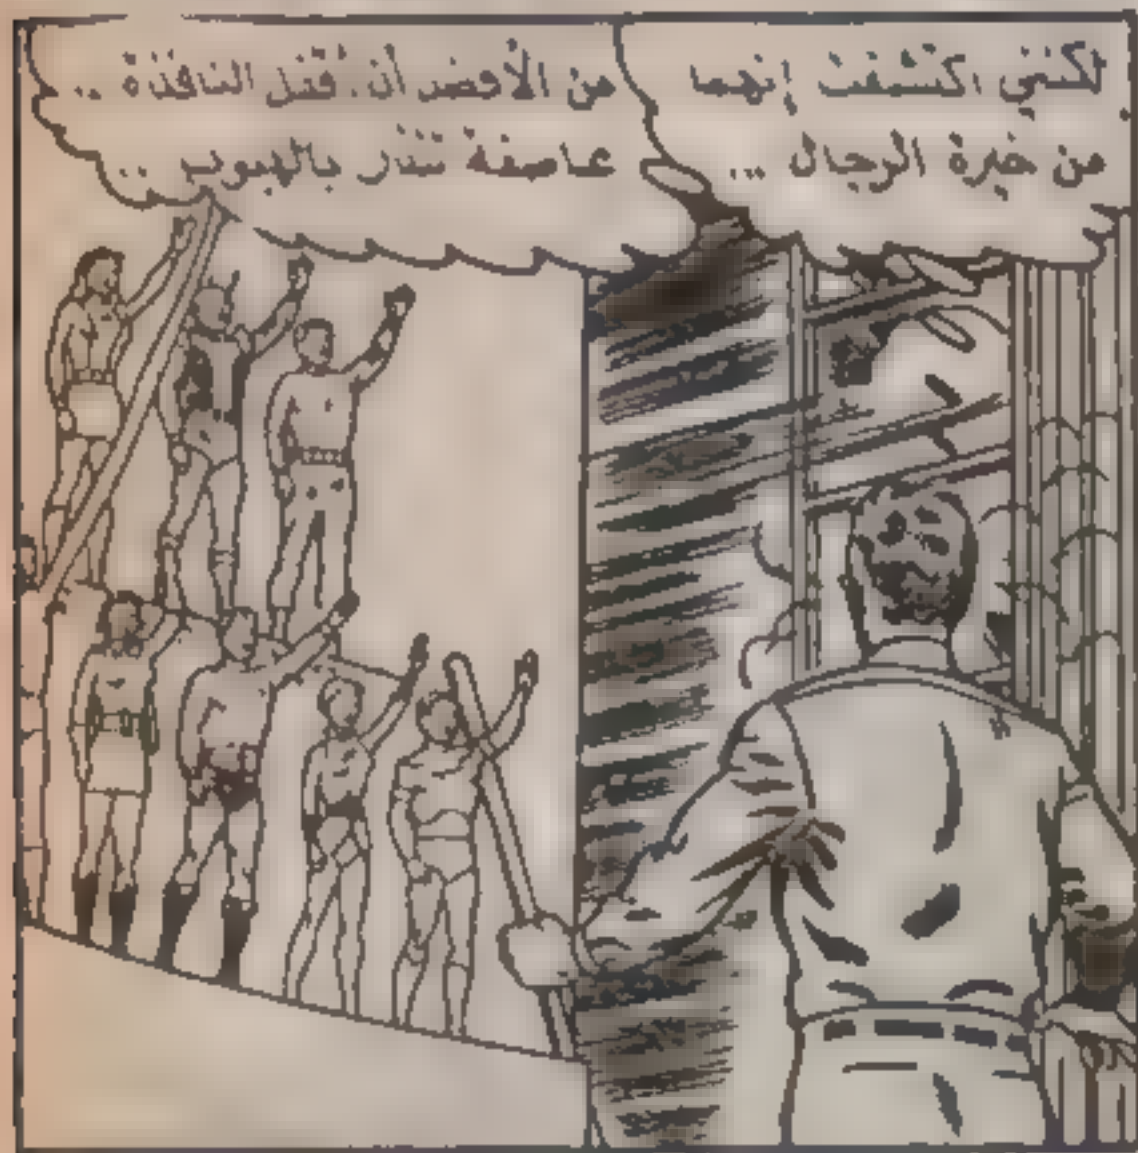 لكنني اكتشفت إنهما
من خيرة الرجال ...
من الأفضل أن. قفل النافذة ..
عاصفة تنذر بالهبوب ..